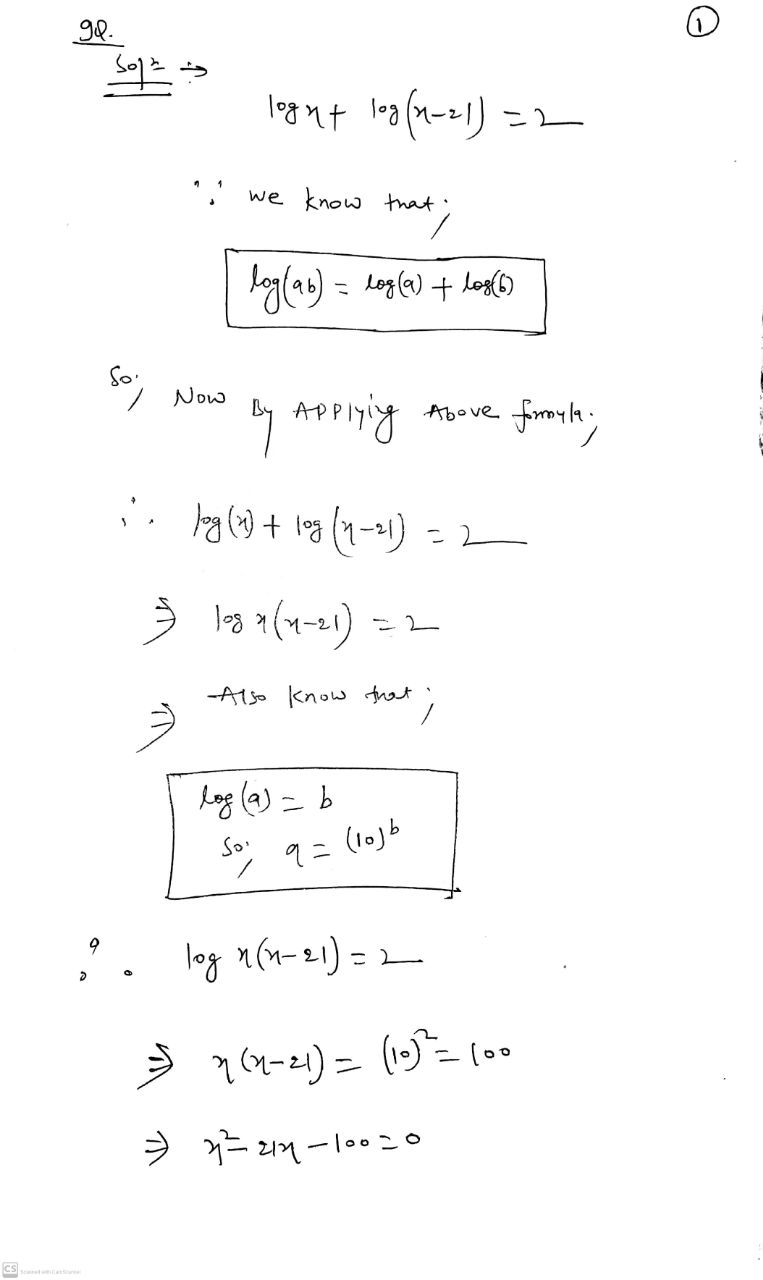 9Q.
①
Solⁿ ⇒
log x + log(x-21) = 2
∵ we know that;
log(ab) = log(a) + log(b)
So; Now By Applying Above formula;
∴ log(x) + log(x-21) = 2
⇒ log x(x-21) = 2
⇒ Also know that;
log(a) = b
So; a = (10)^b
∴ log x(x-21) = 2
⇒ x(x-21) = (10)² = 100
⇒ x² - 21x - 100 = 0
CS Scanned with CamScanner